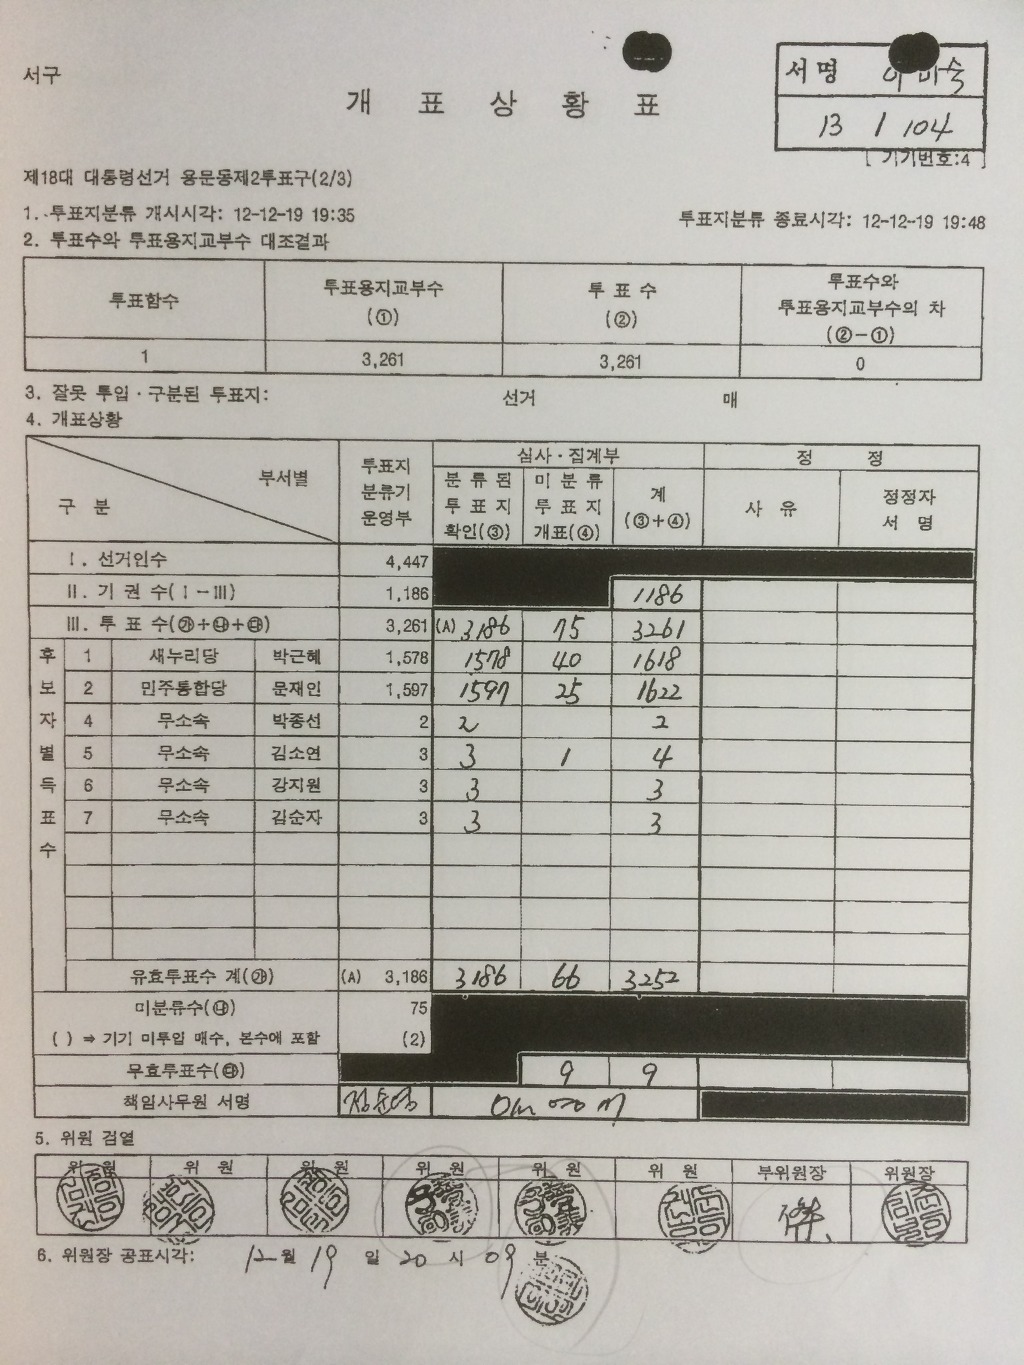 서구
개 표 상 황 표
서명
13 / 104
[ 기기번호:4 ]
제18대 대통령선거 용문동제2투표구(2/3)
1. 투표지분류 개시시각: 12-12-19 19:35
투표지분류 종료시각: 12-12-19 19:48
2. 투표수와 투표용지교부수 대조결과
투표함수 투표용지교부수 (①) 투 표 수 (②) 투표수와 투표용지교부수의 차 (②-①)
1 3,261 3,261 0
3. 잘못 투입·구분된 투표지: 선거 매
4. 개표상황
구 분 부서별 투표지 분류기 운영부 심사·집계부 정 정
분 류 된 투 표 지 확인(③) 미 분 류 투 표 지 개표(④) 계 (③+④) 사 유 정정자 서 명
Ⅰ. 선거인수 4,447
Ⅱ. 기 권 수(Ⅰ-Ⅲ) 1,186 1186
Ⅲ. 투 표 수(㉮+㉯+㉰) 3,261 (A) 3186 75 3261
후보자별득표수
1 새누리당 박근혜 1,578 1578 40 1618
2 민주통합당 문재인 1,597 1597 25 1622
4 무소속 박종선 2 2 2
5 무소속 김소연 3 3 1 4
6 무소속 강지원 3 3 3
7 무소속 김순자 3 3 3
유효투표수 계(㉮) (A) 3,186 3186 66 3252
미분류수(㉯) 75
( ) ⇒ 기기 미투입 매수, 본수에 포함 (2)
무효투표수(㉰) 9 9
책임사무원 서명
5. 위원 검열
위 원 위 원 위 원 위 원 위 원 위 원 부위원장 위원장
6. 위원장 공표시각: 12 월 19 일 20 시 09 분